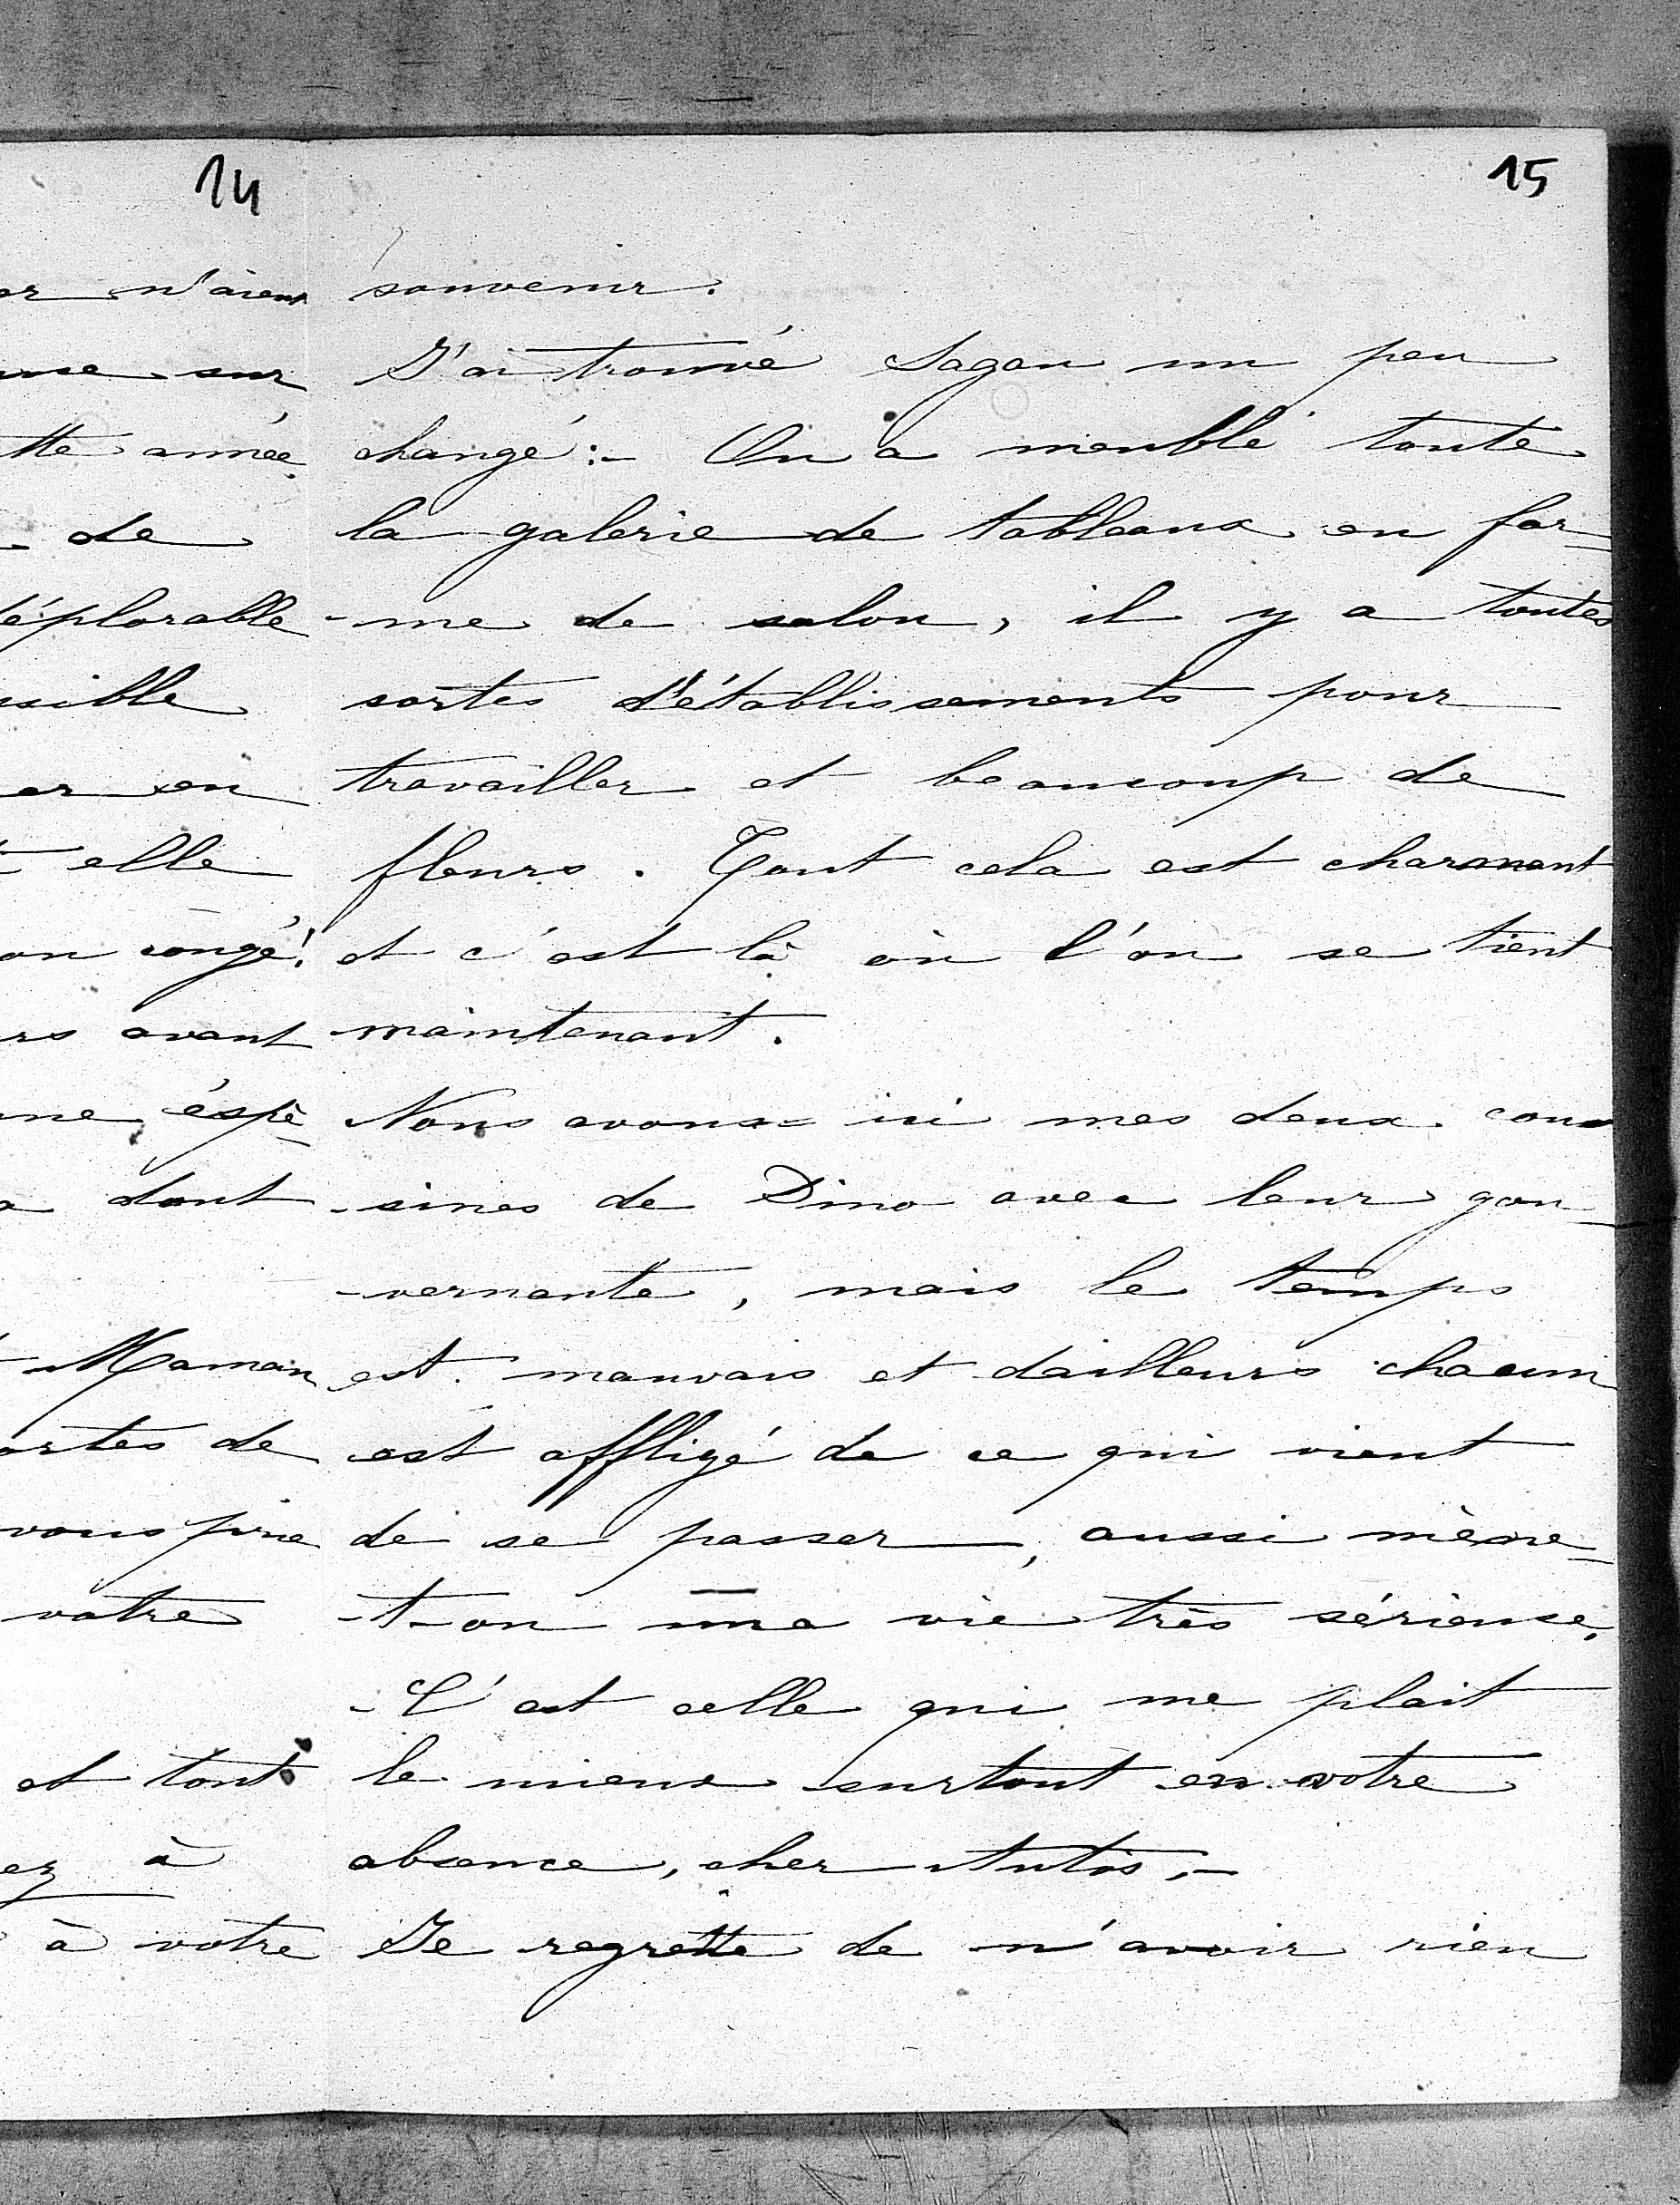 14
n'aient
sur
tte année.
de
déplorable
sible
er en
elle
on congé!
rs avant
une éspè
dont
Maman
ortes de
vous prie
votre
et tout
ez à
à votre
15
souvenir.
J'ai trouvé Sagan un peu
changé:- On a meublé toute
la galerie de tableaux en for=
-me de salon, il y a toutes
sortes d'établissements pour
travailler et beaucoup de
fleurs. Tout cela est charmant
et c'est là où l'on se tient
maintenant.
Nous avons ici mes deux cou
-sines de Dino avec leur gou
-vernante, mais le temps
est mauvais et dailleurs chacun
est affligé de ce qui vient
de se passer, aussi mène=
-t-on une vie très sérieuse.
-C'est celle qui me plait
le mieux surtout en votre
absence, cher Autos.-
Je regrette de n'avoir rien